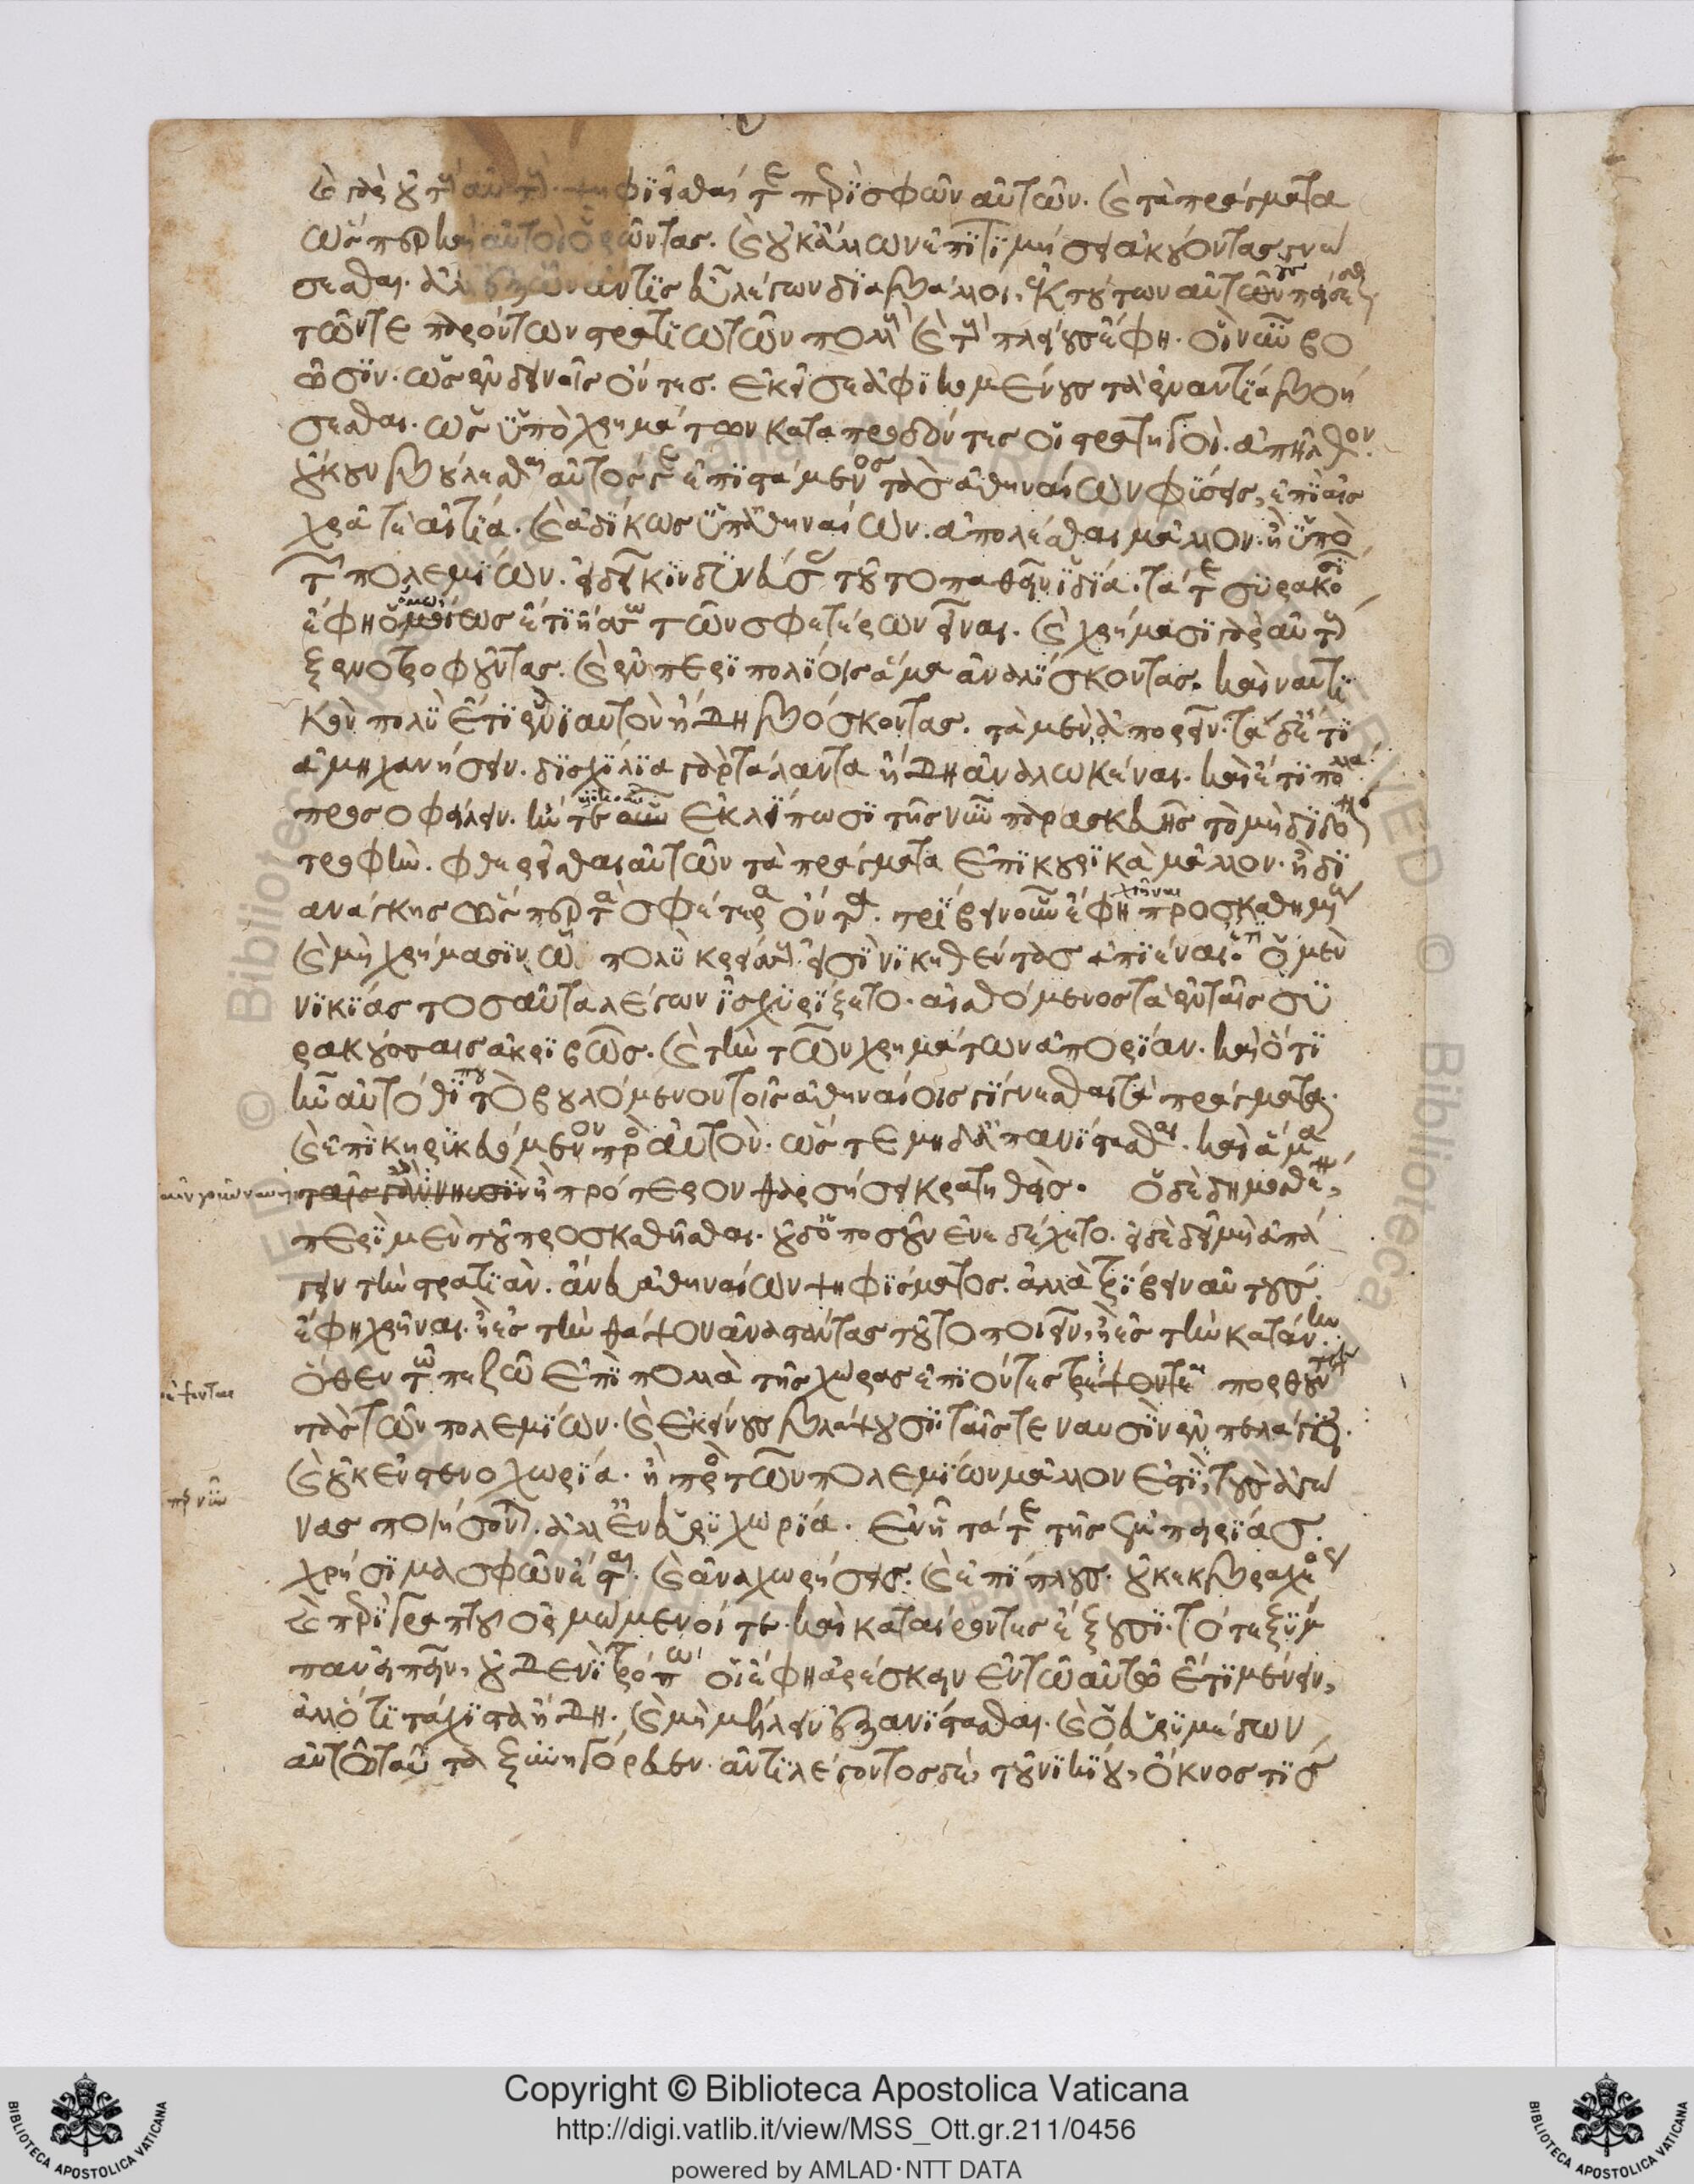 καὶ γὰρ οὐ τοὺς αὐτοὺς ψηφιεῖσθαί τε περὶ σφῶν αὐτῶν. καὶ τὰ πράγματα
ὥσπερ καὶ αὐτοὶ ὁρῶντας. καὶ οὐκ ἄλλων ἐπιτιμήσει ἀκούοντας γνώ
σεσθαι. ἀλλ' ἐξ ὧν ἄν τις εὖ λέγων διαβάλλοι, ἐκ τούτων αὐτοὺς πείσεσθαι
τῶν τε παρόντων στρατιωτῶν πολλοὺς καὶ τοὺς πλείους ἔφη. οἳ νῦν βο
ῶσιν. ὡς ἐν δεινοῖς ὄντες. ἐκεῖσε ἀφικομένους τὰ ἐναντία βοή
σεσθαι. ὡς ὑπὸ χρημάτων καταπροδόντες οἱ στρατηγοὶ. ἀπῆλθον.
οὔκουν βούλεσθαι αὐτός γε ἐπιστάμενος τὰς ἀθηναίων φύσεις, ἐπὶ αἰσ
χρᾷ τε αἰτίᾳ. καὶ ἀδίκως ὑπ' ἀθηναίων. ἀπολέσθαι μᾶλλον. ἢ ὑπὸ
τῶν πολεμίων. εἰ δεῖ κινδυνεύσας τοῦτο παθεῖν ἰδίᾳ. τά τε συρακοσί
ἔφη ὅμως ἔτι ἥσσω τῶν σφετέρων εἶναι. καὶ χρήμασι γὰρ αὐτοὺς
ξενοτροφοῦντας. καὶ ἐν περιπολίοις ἅμα ἀναλίσκοντας. καὶ ναυτι
κὸν πολὺ ἔτι ἐνιαυτὸν ἤδη βόσκοντας. τὰ μὲν ἀπορεῖν. τὰ δ' ἔτι
ἀμηχανήσειν. δισχίλια γὰρ τάλαντα ἤδη ἀναλωκέναι. καὶ ἔτι πολλὰ
προσοφείλειν. ἤν τε ὁτιοῦν ἐκλίπωσι τῆς νῦν παρασκευῆς τῷ μὴ διδόναι
τροφὴν. φθερεῖσθαι αὐτῶν τὰ πράγματα ἐπικουρικὰ μᾶλλον. ἢ δι'
ἀνάγκης ὥσπερ τὰ σφέτερα ὄντα. τρίβειν οὖν ἔφη χρῆναι προσκαθημένους
καὶ μὴ χρήμασιν, ὧν πολὺ κρείσσους εἰσὶ νικηθέντας ἀπιέναι. ὁ μὲν
νικίας τοσαῦτα λέγων ἰσχυρίζετο. αἰσθόμενος τὰ ἐν ταῖς συ
ρακούσαις ἀκριβῶς. καὶ τὴν τῶν χρημάτων ἀπορίαν. καὶ ὅτι
ἦν αὐτόθι που τὸ βουλόμενον τοῖς ἀθηναίοις γίγνεσθαι τὰ πράγματα.
καὶ ἐπικηρυκευόμενον πρὸς αὐτὸν. ὥστε μὴ ἀπανίστασθαι. καὶ ἅμα
ταῖς γοῦν ναυσὶν ἢ πρότερον θαρσήσει κρατηθεὶς. ὁ δὲ δημοσθένης,
περὶ μὲν τοῦ προσκαθῆσθαι. οὐδ' ὁπωσοῦν ἐνεδέχετο. εἰ δὲ δεῖ μὴ ἀπά
γειν τὴν στρατιὰν. ἄνευ ἀθηναίων ψηφίσματος. ἀλλὰ τρίβειν αὐτοὺς.
ἔφη χρῆναι. ἢ ἐς τὴν θάψον ἀναστάντας τοῦτο ποιεῖν, ἢ ἐς τὴν κατάνην.
ὅθεν τῷ πεζῷ ἐπὶ πολλὰ τῆς χώρας ἐπιόντες θρέψονται πορθοῦντες
τὰς τῶν πολεμίων. καὶ ἐκείνους βλάψουσι ταῖς τε ναυσὶν ἐν πελάγει.
καὶ οὐκ ἐν στενοχωρίᾳ. ἣ πρὸς τῶν πολεμίων μᾶλλον ἐστὶ, τοὺς ἀγῶ
νας ποιήσονται. ἀλλ' ἐν εὐρυχωρίᾳ. ἐν ᾗ τά τε τῆς ἐμπειρίας.
χρήσιμα σφῶν ἔσται. καὶ ἀναχωρήσεις. καὶ ἐπίπλους. οὐκ ἐκ βραχέος
καὶ περιγραπτοῦ ὁρμώμενοί τε. καὶ καταίροντες ἕξουσι. τό τε ξύμ
παν εἰπεῖν, οὐδενὶ τρόπῳ οἱ ἔφη ἀρέσκειν ἐν τῷ αὐτῷ ἔτι μένειν,
ἀλλ' ὅτι τάχιστα ἤδη. καὶ μὴ μέλλειν ἐξανίστασθαι. καὶ ὁ εὐρυμέδων
αὐτῷ ταῦτα ξυνηγόρευεν. ἀντιλέγοντος δὲ, τοῦ νικίου, ὄκνος τις